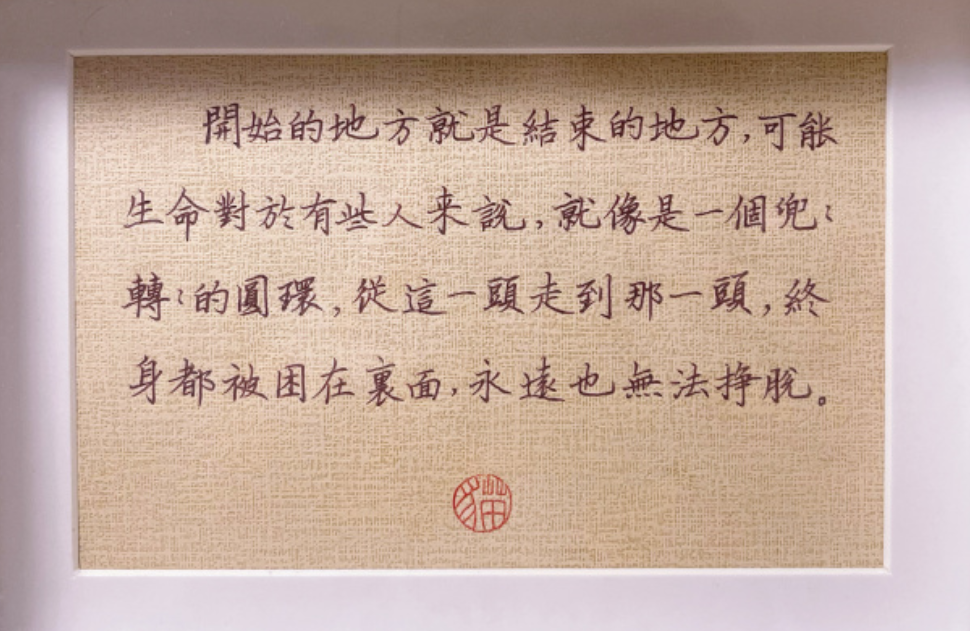 開始的地方就是結束的地方,可能
生命對於有些人来說,就像是一個兜〻
轉〻的圓環,從這一頭走到那一頭,終
身都被困在裏面,永遠也無法掙脫。
貓